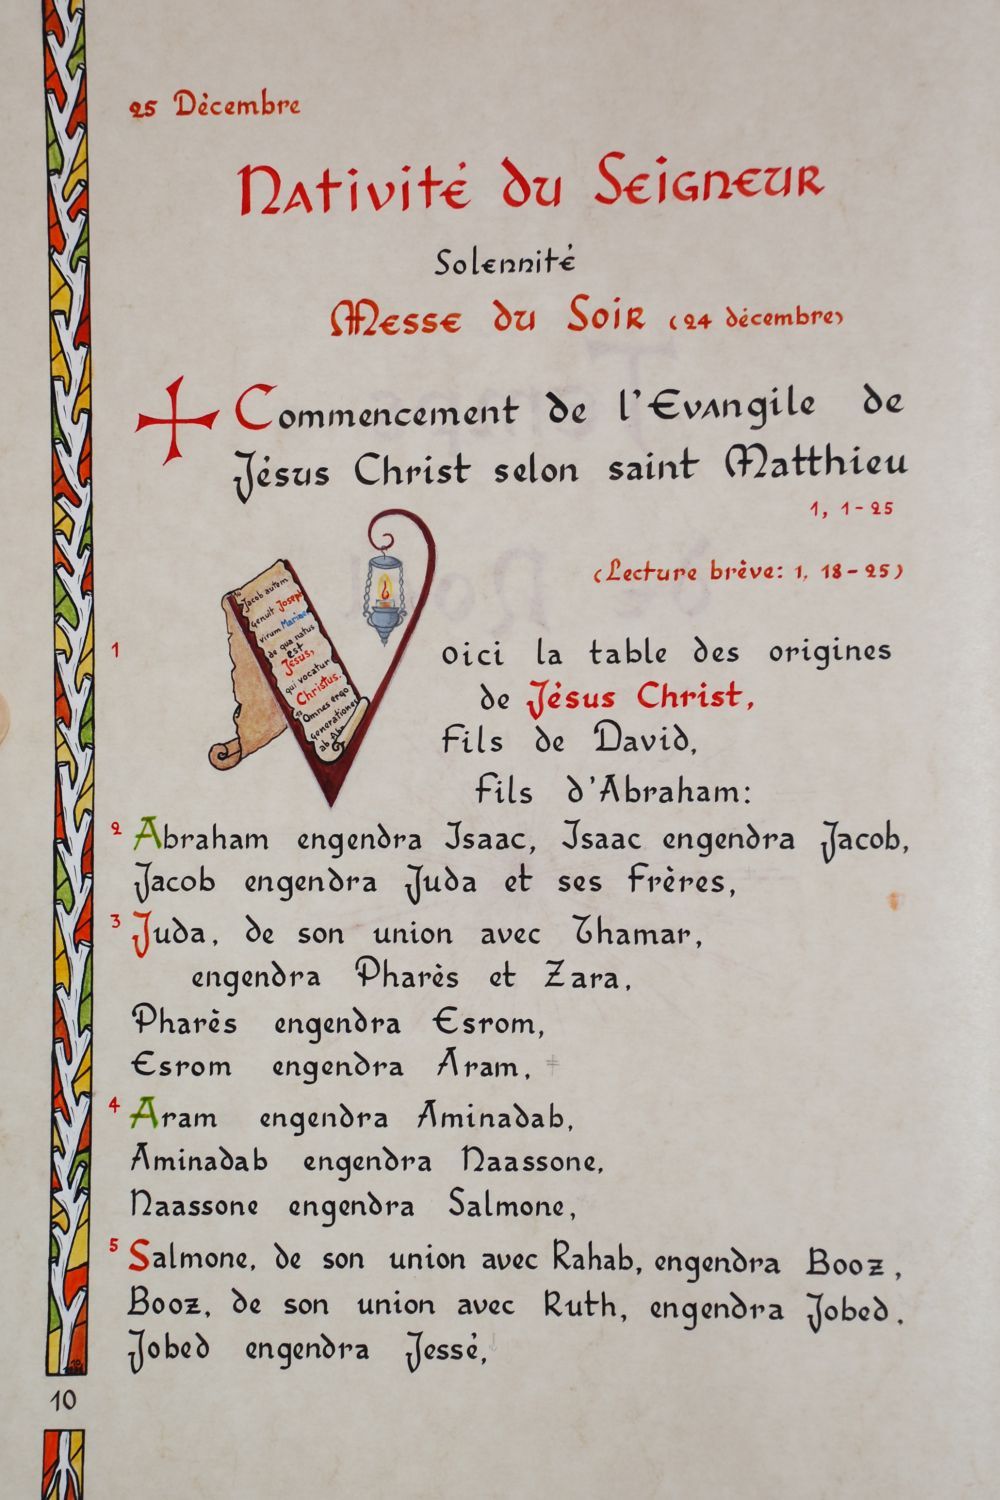 25 Décembre
Nativité du Seigneur
Solennité
Messe du Soir (24 décembre)
Commencement de l'Evangile de
Jésus Christ selon saint Matthieu
1, 1-25
(Lecture brève: 1, 18-25)
Jacob autem
genuit Joseph
virum Mariae
de qua natus
est
Jesus,
qui vocatur
Christus.
Omnes ergo
generationes
ab Abr
1 Voici la table des origines
de Jésus Christ,
fils de David,
fils d'Abraham:
2 Abraham engendra Isaac, Isaac engendra Jacob,
Jacob engendra Juda et ses frères,
3 Juda, de son union avec Thamar,
engendra Pharès et Zara,
Pharès engendra Esrom,
Esrom engendra Aram,
4 Aram engendra Aminadab,
Aminadab engendra Naassone,
Naassone engendra Salmone,
5 Salmone, de son union avec Rahab, engendra Booz,
Booz, de son union avec Ruth, engendra Jobed.
Jobed engendra Jessé,
10